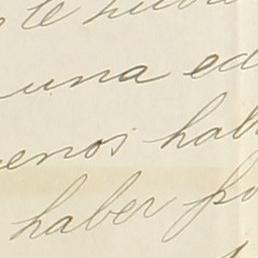 te
una ed
enos hab
haber po